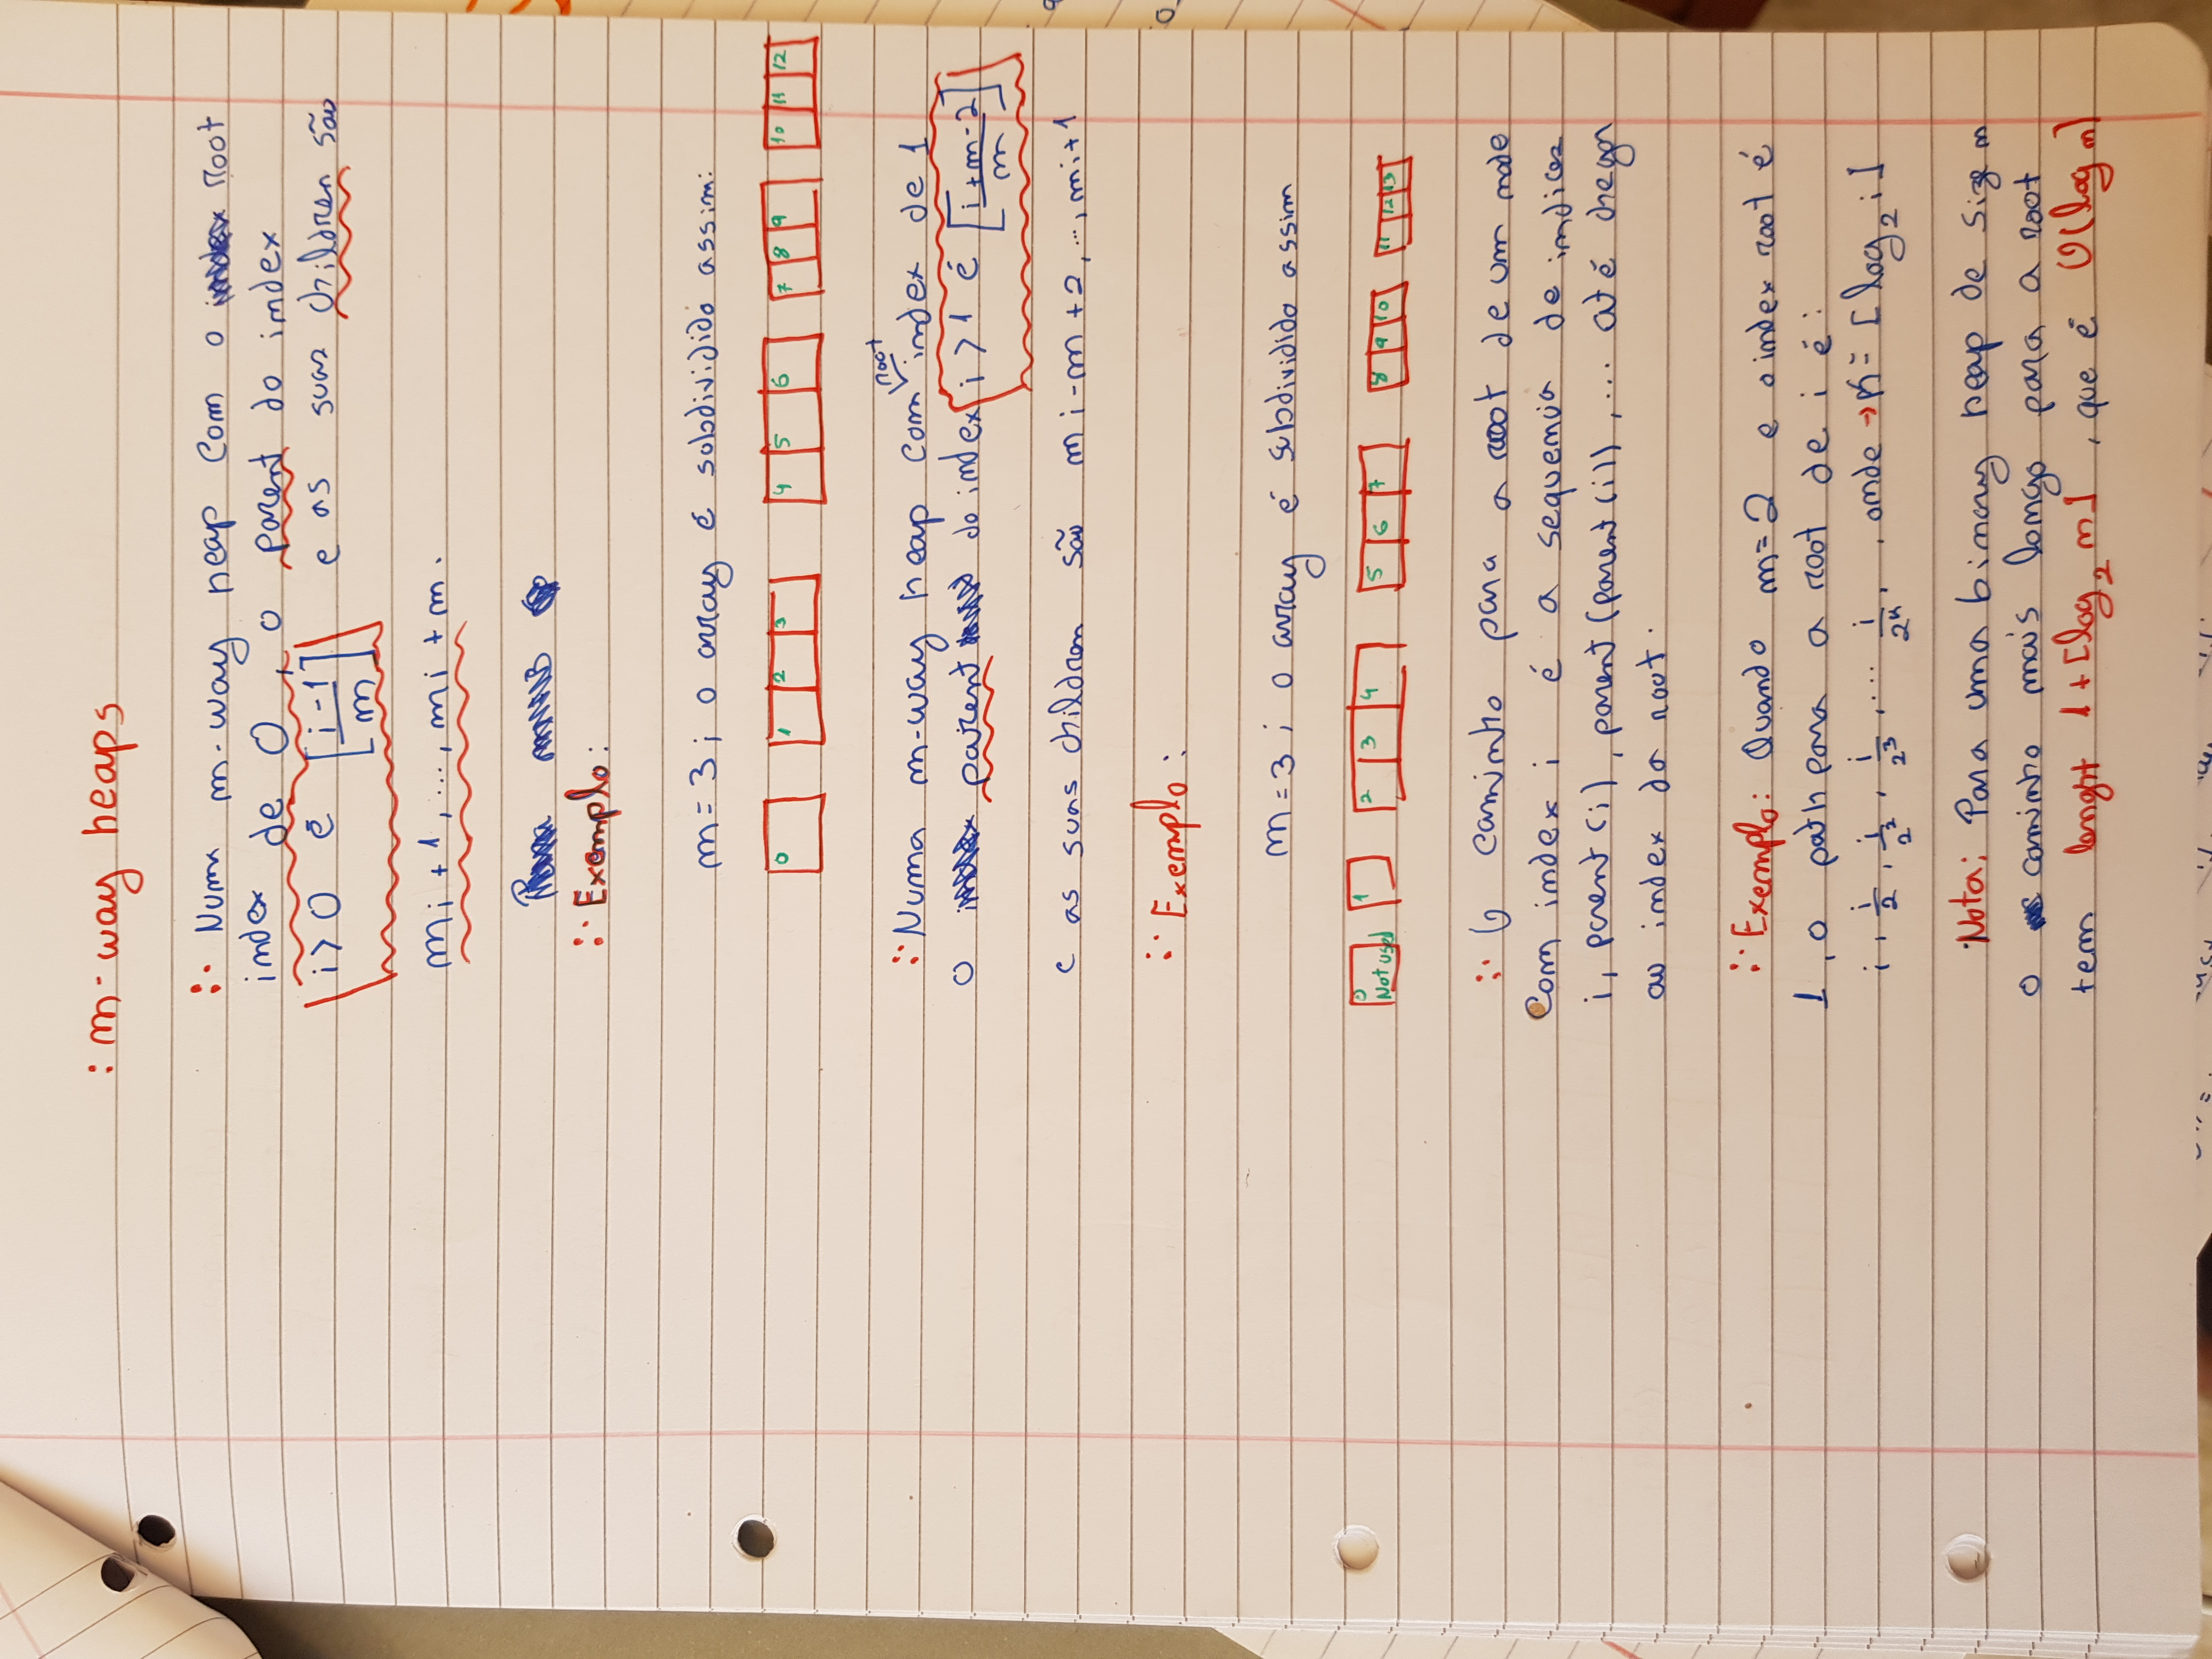 : m-way heaps
∵ Numa m-way heap com o root
index de 0, o parent do index
i > 0 é [i-1/m] e as suas children são
mi + 1, ..., mi + m.
∵ Exemplo:
m = 3; o array é subdividido assim:
0 1 2 3 4 5 6 7 8 9 10 11 12
root
∵ Numa m-way heap com index de 1
o parent do index i > 1 é [i+m-2/m]
e as suas children são mi-m+2, ..., mi+1
∵ Exemplo:
m = 3; o array é subdividido assim
0 Not used 1 2 3 4 5 6 7 8 9 10 11 12 13
∵ O caminho para a root de um node
com index i é a sequencia de indices
i, parent(i), parent(parent(i)), ... até chegar
ao index da root.
∵ Exemplo: Quando m=2 e o index root é
1, o path para a root de i é:
i, i/2, i/2², i/2³, ... i/2ᵏ, , onde → K = [log₂ i]
Nota: Para uma binary heap de size n
o caminho mais longo para a root
tem lenght 1+[log₂ n], que é O(log n)